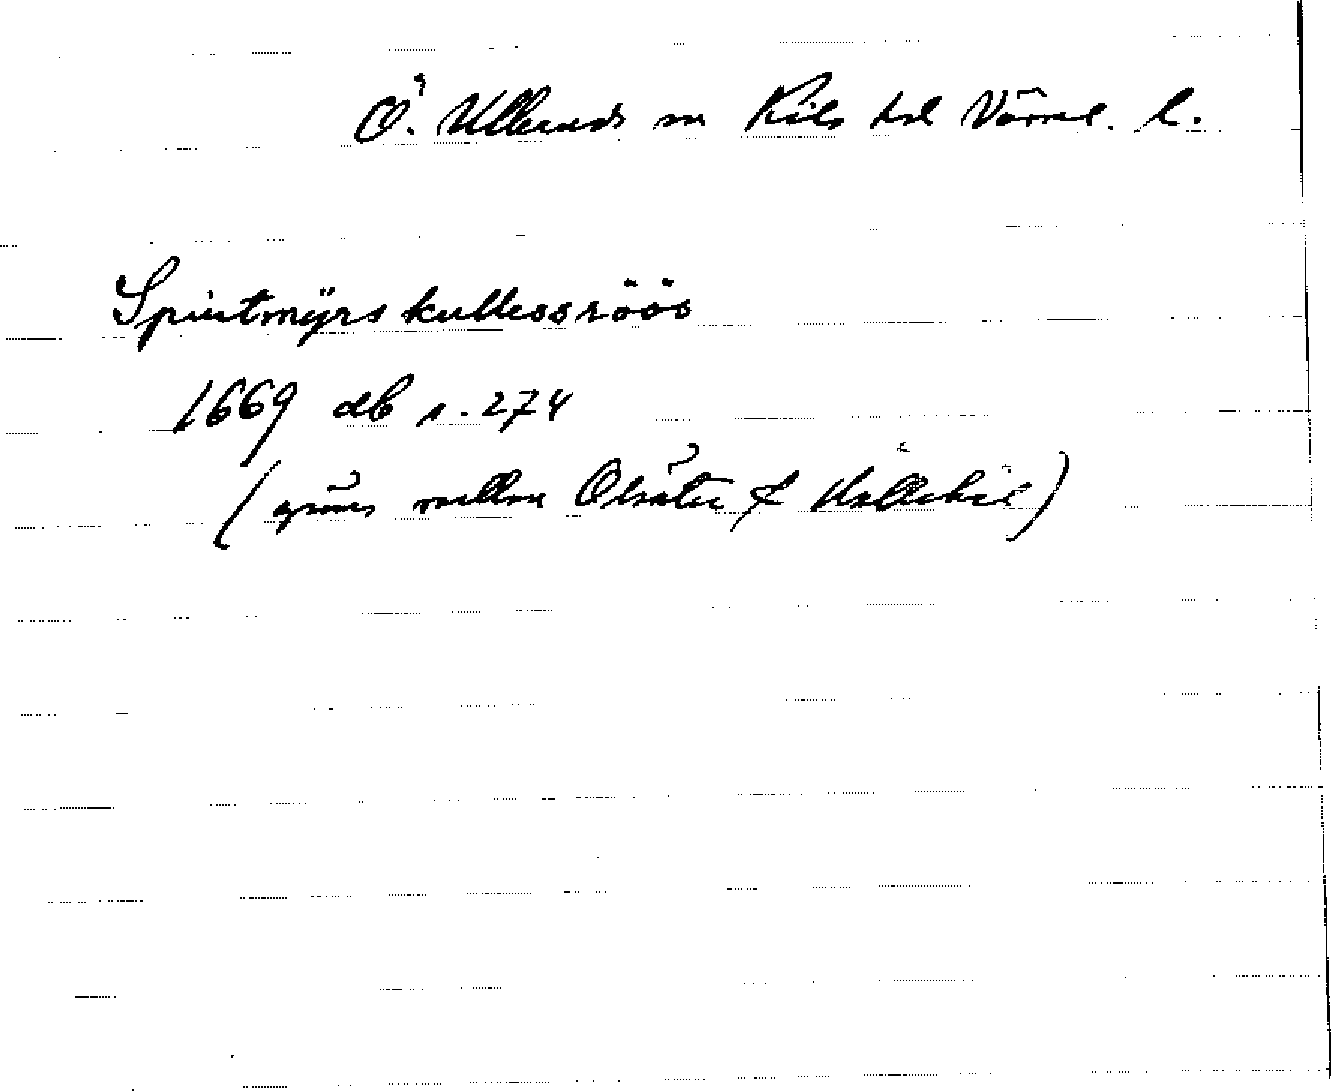 Ö. Ullerud sn Kils hd Värml. l.
Spintmÿrskulleosröös
1669 db s. 274
(gräns mellan Olsäter & Hållekil)